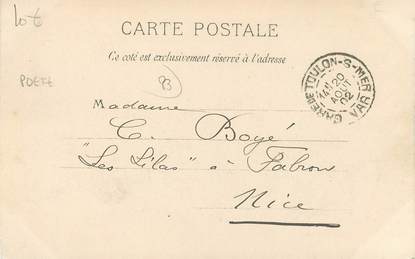 lot
CARTE POSTALE
Ce coté est exclusivement réservé à l'adresse
POSTE
B
GARE DE TOULON-S-MER
20
AOUT
02
VAR
Madame
C. Boyé
"Les Lilas" à Fabron
Nice